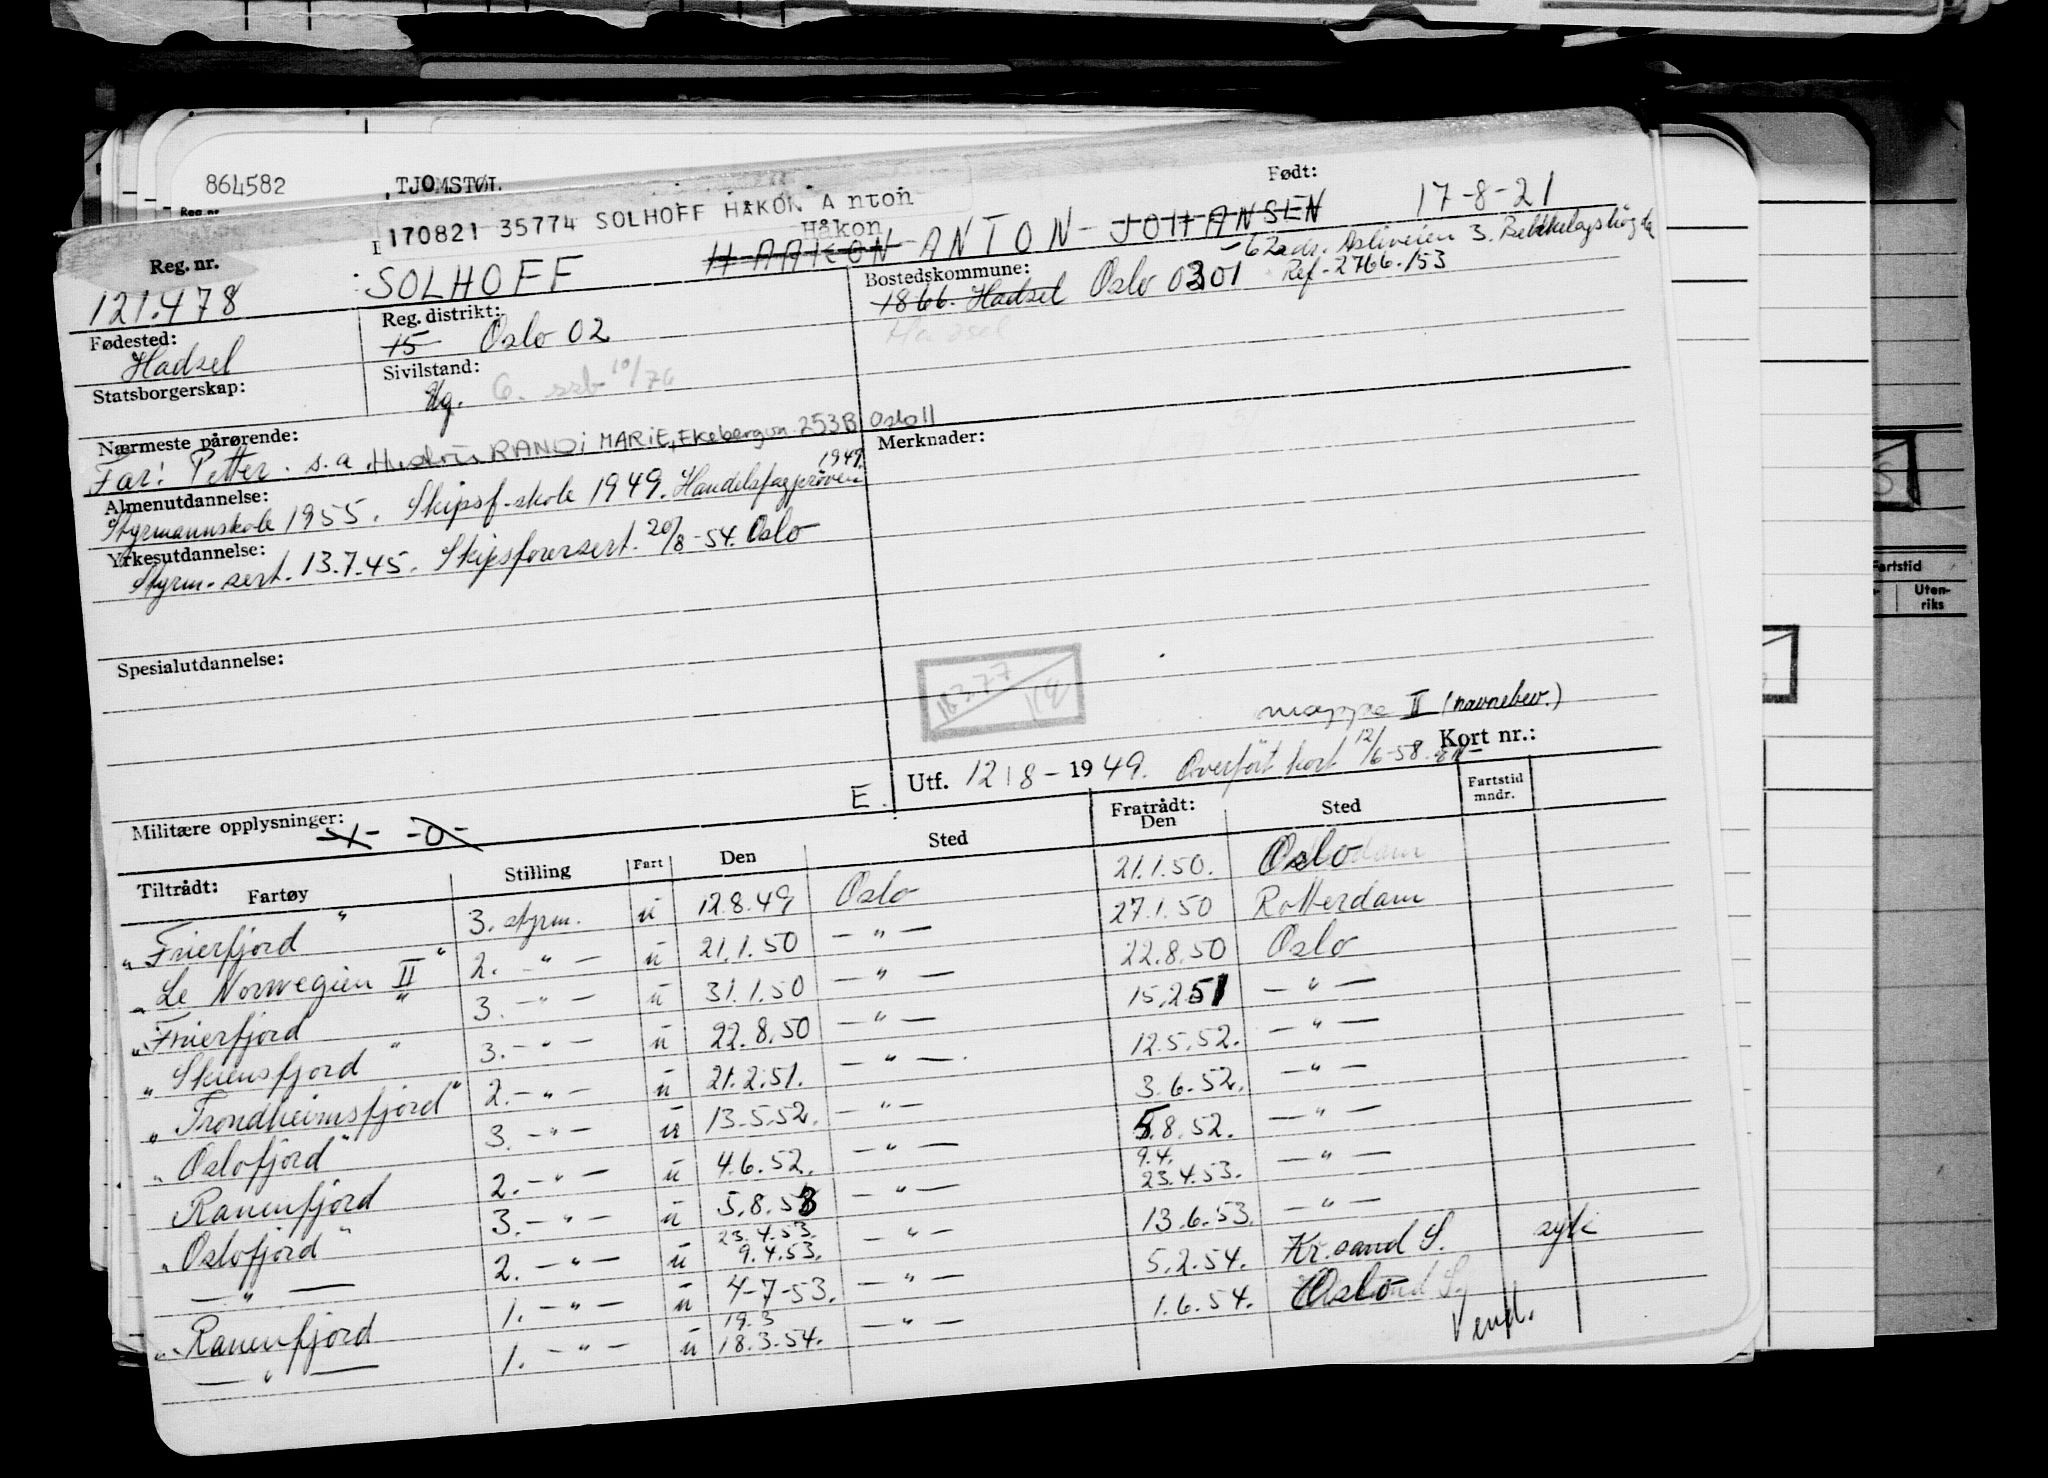 864582 TJOMSTØL
170821 35774 SOLHOFF HAKON Anton
Født:
17-8-21
Håkon
Reg. nr.
121.478
SOLHOFF HAAKON ANTON JOHANSEN
62 adr. Asliveien 3. Bekkelagshøgda
Ref. 2766.153
Fødested:
Hadsel
Reg. distrikt:
15 Oslo 02
Bostedskommune:
1866. Hadsel Oslo 0301
Hadsel
Statsborgerskap:
Sivilstand:
Ug. G. 10/76
Nærmeste pårørende:
Far: Petter. s.a. Hustru RANDI MARIE, Ekebergvn. 253B Oslo 11
Merknader:
Almenutdannelse:
Styrmannskole 1955. Skipsf.skole 1949. Handelsfagprøven 1949.
Yrkesutdannelse:
Styrm. sert. 13.7.45. Skipsførersert. 20/8-54. Oslo
Spesialutdannelse:
mappe II (navnebev.)
Kort nr.:
Utf. 12/8-1949. Overført kort 12/6-58.
E.
Militære opplysninger:
-x- -0-
Tiltrådt:
Fartøy Stilling Fart Den Sted Fratrådt: Den Sted Fartstid mndr.
"Frierfjord" 3. styrm. u 12.8.49 Oslo 21.1.50. Oslo
"Le Norwegien II" 2. -"- u 21.1.50 -"- 27.1.50 Rotterdam
"Frierfjord" 3. -"- u 31.1.50 -"- 22.8.50 Oslo
"Skiensfjord" 3. -"- u 22.8.50 -"- 15.2.51 -"-
"Trondheimsfjord" 2. -"- u 21.2.51. -"- 12.5.52. -"-
"Oslofjord" 3. -"- u 13.5.52. -"- 3.6.52. -"-
Ranenfjord 2. -"- u 4.6.52. -"- 5.8.52. -"-
"Oslofjord" 3. -"- u 5.8.53 -"- 9.4. 23.4.53. -"-
-"- 2. -"- u 23.4.53. 9.4.53. -"- 13.6.53. -"-
"Ranenfjord 1. -"- u 4-7-53. -"- 5.2.54. Kr.sand S. syk
-"- 1. -"- u 19.3 18.3.54. -"- 1.6.54. Oslo
Vend.
Fartstid
Uten-
riks